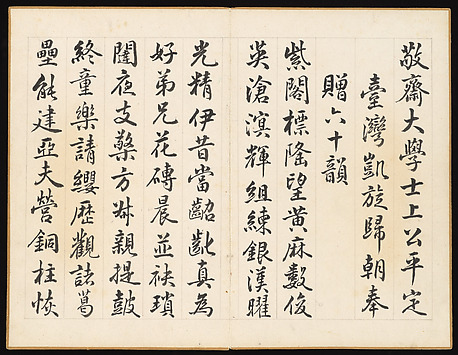 敬齋大學士上公平定
臺灣凱旋歸朝奉
贈六十韻
紫閣標隆望黃麻數俊
英滄溟輝組練銀漢曜
光精伊昔當齠齔真為
好弟兄花磚晨並袂瑣
闥夜支檠方叔親提皷
終童樂請纓歷觀諸葛
壘能建亞夫營銅柱恢